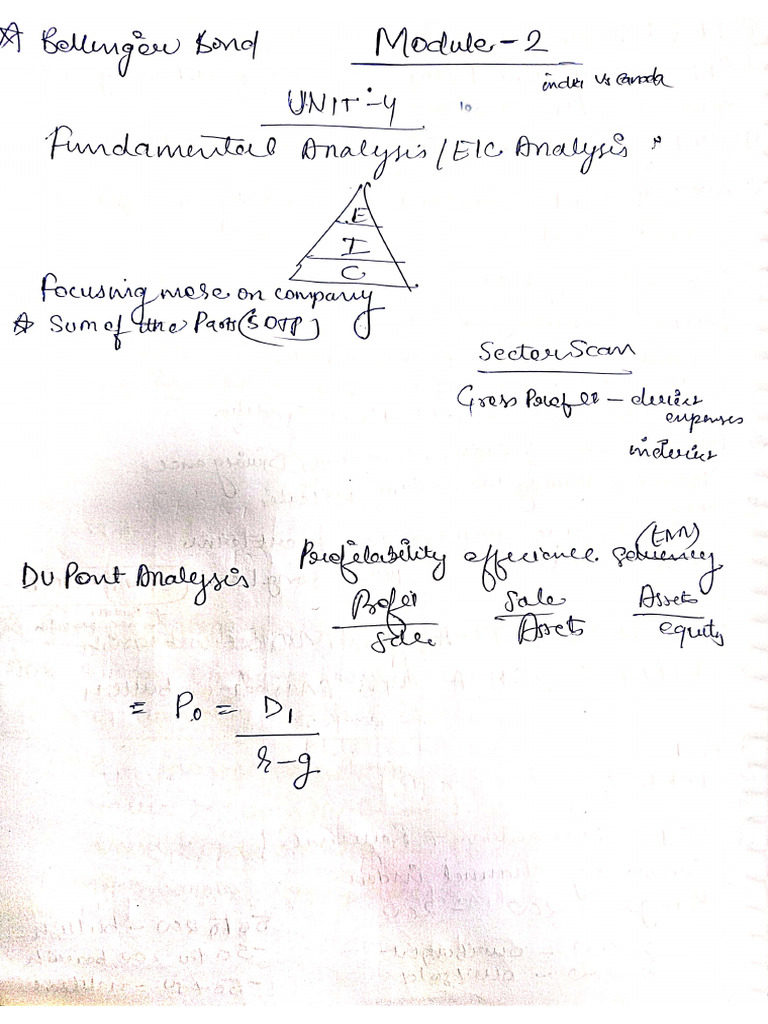 ☆ Bollinger Bond
Module-2
India vs Canada
UNIT:-4
10
Fundamental Analysis/EIC Analysis
E
I
C
Focusing more on company
☆ Sum of the Parts (SOTP)
Sector Scan
Gross Profit – direct
expenses
indirect
(EM)
Du Pont Analysis Profitability efficience. Solvency
Profit Sale Assets
Sale Assets equity
= P₀ = D₁
r-g